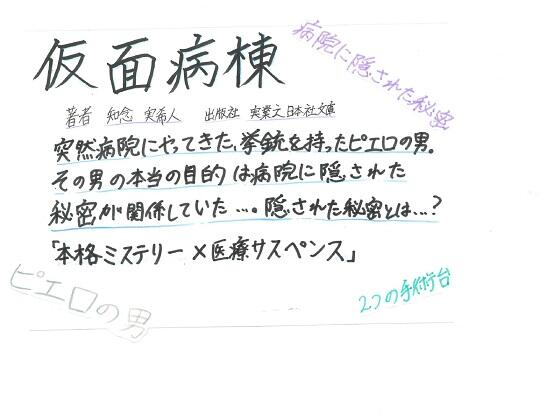 仮面病棟
病院に隠された秘密
著者 知念 実希人 出版社 実業之日本社文庫
突然病院にやってきた、拳銃を持ったピエロの男。
その男の本当の目的は病院に隠された
秘密が関係していた…。隠された秘密とは…?
「本格ミステリー×医療サスペンス」
ピエロの男
2つの手術台